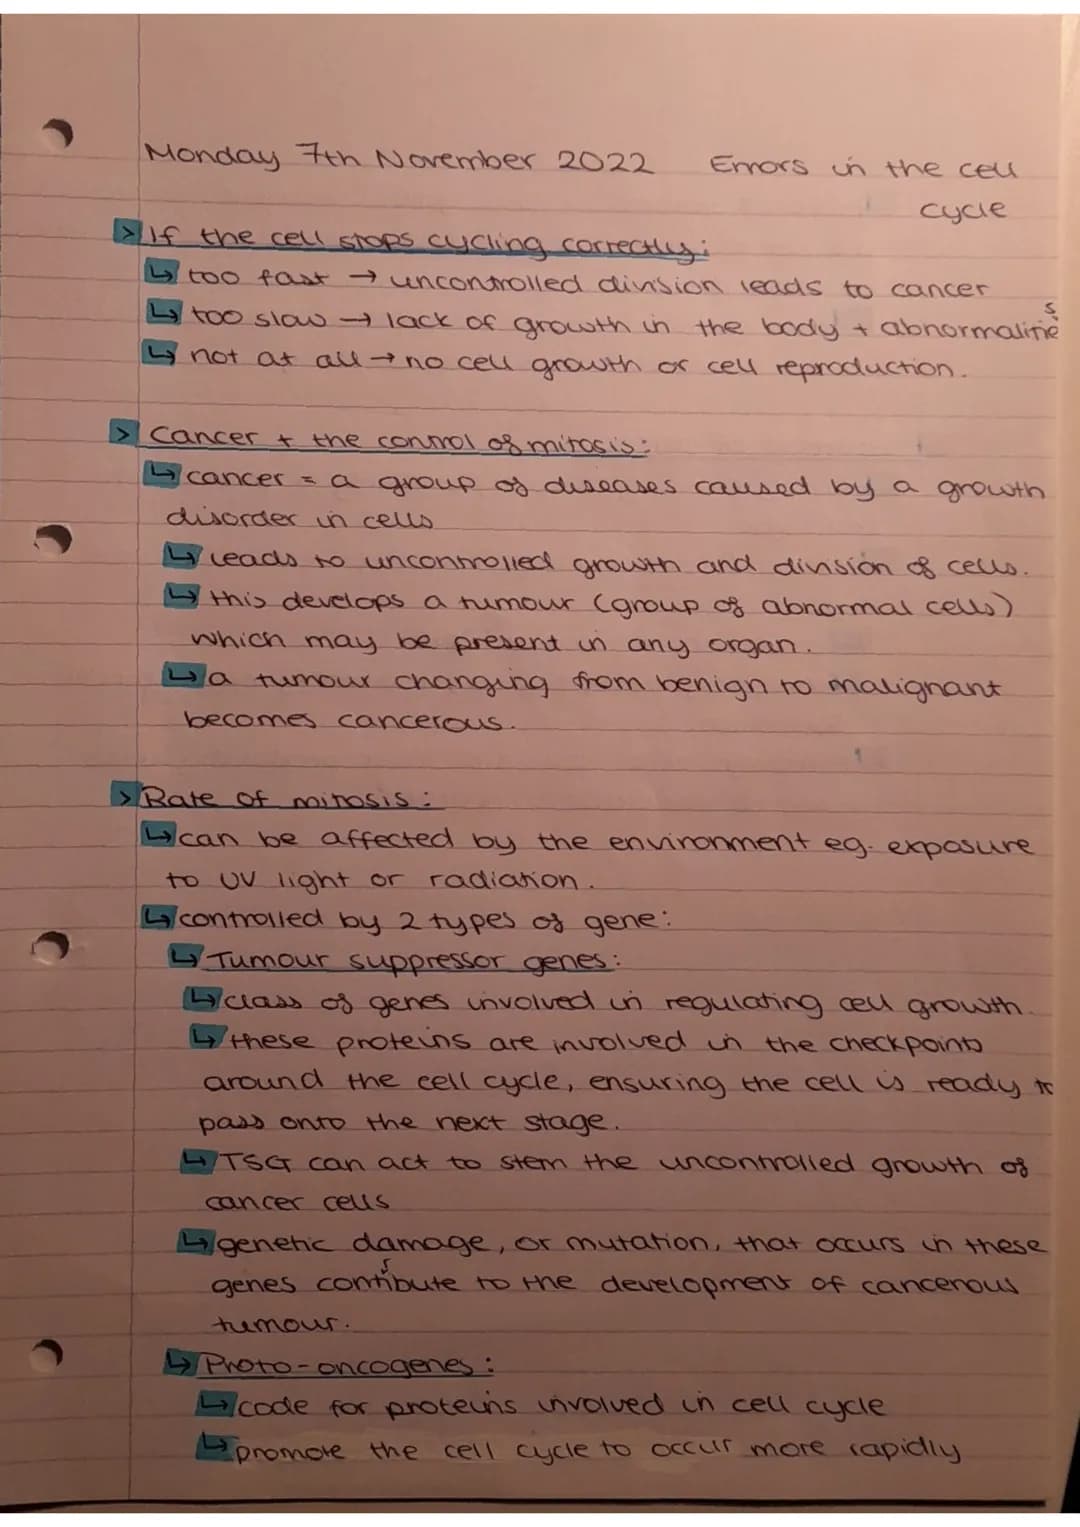 Monday 7th November 2022 Errors in the cell
cycle
> If the cell stops cycling correctly:
↳ too fast → uncontrolled division leads to cancer
↳ too slow → lack of growth in the body + abnormalities
↳ not at all → no cell growth or cell reproduction.
> Cancer + the control of mitosis:
↳ cancer = a group of diseases caused by a growth
disorder in cells
↳ leads to uncontrolled growth and division of cells.
↳ this develops a tumour (group of abnormal cells)
which may be present in any organ.
↳ a tumour changing from benign to malignant
becomes cancerous.
> Rate of mitosis:
↳ can be affected by the environment eg. exposure
to UV light or radiation.
↳ controlled by 2 types of gene:
↳ Tumour suppressor genes:
↳ class of genes involved in regulating cell growth.
↳ these proteins are involved in the checkpoints
around the cell cycle, ensuring the cell is ready to
pass onto the next stage.
↳ TSG can act to stem the uncontrolled growth of
cancer cells
↳ genetic damage, or mutation, that occurs in these
genes contribute to the development of cancerous
tumour.
↳ Proto-oncogenes:
↳ code for proteins involved in cell cycle
↳ promote the cell cycle to occur more rapidly